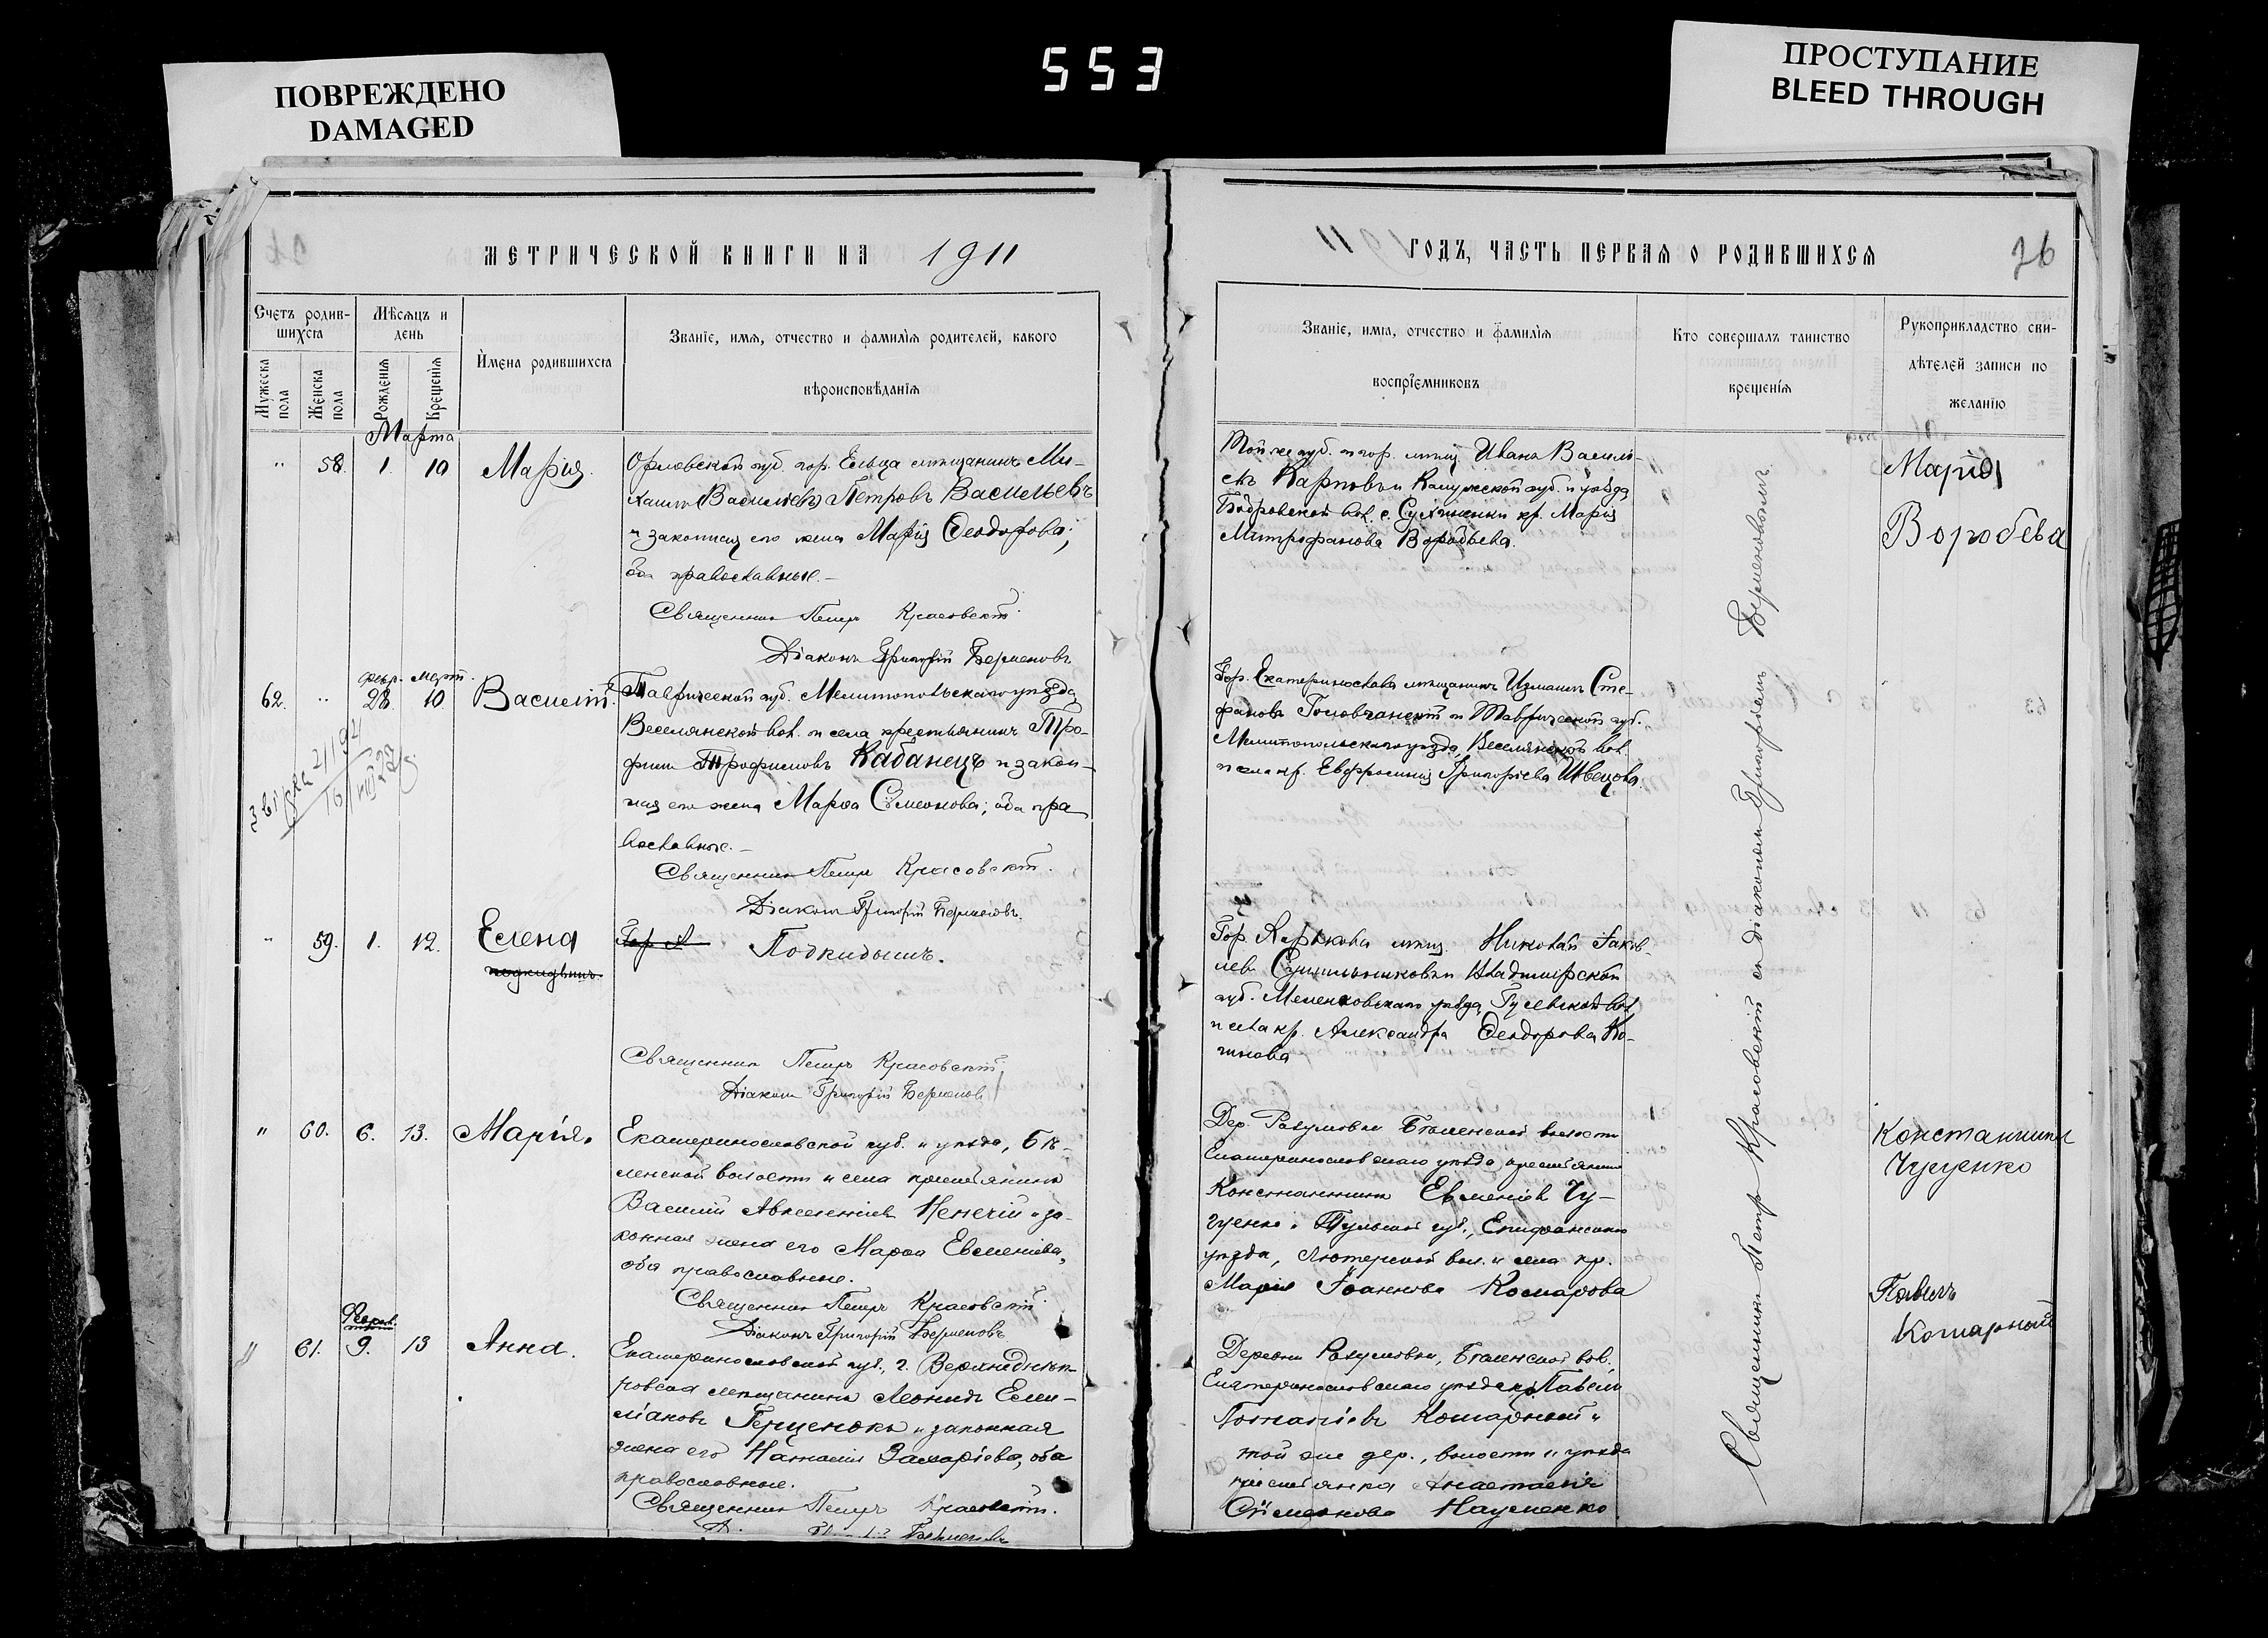 ПОВРЕЖДЕНО
DAMAGED
553
ПРОСТУПАНИЕ
BLEED THROUGH
МЕТРИЧЕСКОЙ КНИГИ НА 1911
Счетъ родив-
шихся
Мужеска пола
Женска пола
Мѣсяцъ и
день
Рожденія
Крещенія
Имена родившихся
Званіе, имя, отчество и фамилія родителей, какого
вѣроисповѣданія
Марта
" 58. 1. 10 Марія.
Орловской губ. гор. Ельца мѣщанинъ Ми-
хаилъ (Васильевъ) Петровъ Васильевъ
и законная его жена Марія Ѳеодорова;
оба православные.
Священникъ Петръ Красовскій
Діаконъ Григорій Берменовъ
февр. март.
62. " 28. 10 Василій.
Таврической губ. Мелитопольскаго уѣзда
Веселянской вол. и села крестьянинъ Тро-
фимъ Трофимовъ Кабанецъ и закон-
ная его жена Марѳа Сѵмеонова; оба пра
вославные.
Священникъ Петръ Красовскій.
Діаконъ Григорій Берменовъ.
" 59. 1. 12. Елена
подкидышъ.
Гор Подкидышъ.
Священникъ Петръ Красовскій
Діаконъ Григорій Берменовъ
" 60. 6. 13. Марія.
Екатеринославской губ. и уѣзда, Бѣ-
ленской волости и села крестьянинъ
Василій Авксентіевъ Ненечій и за-
конная жена его Марѳа Евменіева,
оба православные.
Священникъ Петръ Красовскій
Діаконъ Григорій Берменовъ
Феврал.
" 61. 9. 13 Анна.
Екатеринославской губ., г. Верхнеднѣп-
ровска мѣщанинъ Леонидъ Еми-
ліановъ Герценокъ и законная
жена его Наталія Захаріева, оба
православные.
Священникъ Петръ Красовскій.
Берменовъ
ГОДЪ, ЧАСТЬ ПЕРВАЯ О РОДИВШИХСЯ
Званіе, имя, отчество и фамилія
воспріемниковъ
Кто совершалъ таинство
крещенія
Рукоприкладство сви-
дѣтелей записи по
желанію
Той же губ. и гор. мѣщ. Иванъ Василь-
евъ Карповъ и Калужской губ. и уѣзда
Бобровской вол. с. кр. Марія
Митрофанова Воробьева.
Марія
Воробева
Гор. Екатеринослава мѣщанинъ Измаилъ Сте-
фановъ Головчанскій и Таврической губ.
Мелитопольскаго уѣзда, Веселянской вол.
и села кр. Евфросинія Григоріева Швецова.
Гор. Харькова мѣщ. Николай Іаков-
левъ Сушильниковъ и Владимірской
губ. Меленковскаго уѣзда, Гусевской вол.
и села кр. Александра Ѳеодорова Ко-
Дер. Разумовки Бѣленской волости
Екатеринославскаго уѣзда крестьянинъ
Константинъ Евменіевъ Чу-
гуенко и Тульской губ., Епифанскаго
уѣзда, Лютерской вол. и села кр.
Марія Іоаннова Комарова
Константинъ
Чугуенко
Деревни Разумовки, Бѣленской вол.,
Екатеринославскаго уѣзда кр. Павелъ
Кошарный и
той же дер., волости и уѣзда
крестьянка Анастасія
Сѵмеонова Науменко
Павелъ
Кошарный
Священникъ Петръ Красовскій съ діакономъ Григоріемъ Берменовымъ